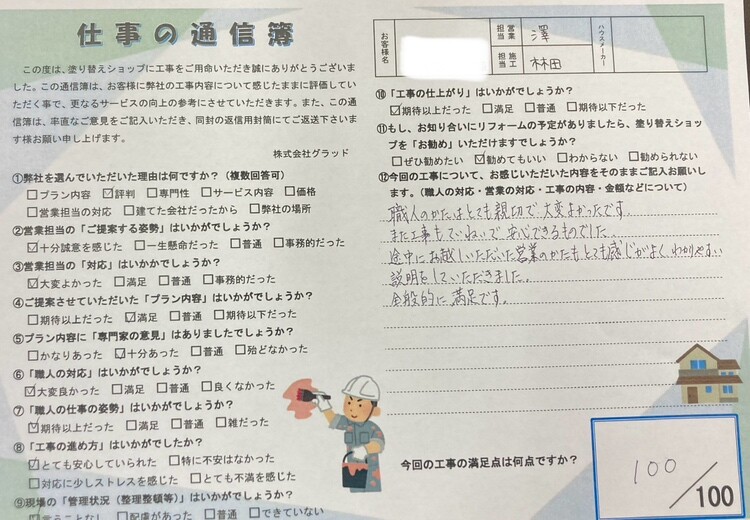 仕事の通信簿
この度は、塗り替えショップに工事をご用命いただき誠にありがとうございま
した。この通信簿は、お客様に弊社の工事内容について感じたままに評価してい
ただく事で、更なるサービスの向上の参考にさせていただきます。また、この通
信簿は、率直なご意見をご記入いただき、同封の返信用封筒にてご返送下さいま
す様お願い申し上げます。
株式会社グラッド
①弊社を選んでいただいた理由は何ですか?(複数回答可)
□プラン内容 ☑評判 □専門性 □サービス内容 □価格
□営業担当の対応 □建てた会社だったから □弊社の場所
②営業担当の「ご提案する姿勢」はいかがでしょうか?
☑十分誠意を感じた □一生懸命だった □普通 □事務的だった
③営業担当の「対応」はいかかでしょうか?
☑大変よかった □満足 □普通 □事務的だった
④ご提案させていただいた「プラン内容」はいかがでしょうか?
□期待以上だった ☑満足 □普通 □期待以下だった
⑤プラン内容に「専門家の意見」はありましたでしょうか?
□かなりあった ☑十分あった □普通 □殆どなかった
⑥「職人の対応」はいかがでしょうか?
☑大変良かった □満足 □普通 □良くなかった
⑦「職人の仕事の姿勢」はいかがでしょうか?
☑期待以上だった □満足 □普通 □雑だった
⑧「工事の進め方」はいかがでしたか?
☑とても安心していられた □特に不安はなかった
□対応に少しストレスを感じた □とても不満を感じた
⑨現場の「管理状況(整理整頓等)」はいかがでしょうか?
☑言うことなし □配慮があった □普通 □できていない
お客様名
営業担当 澤
施工担当 林田
ハウスメーカー
⑩「工事の仕上がり」はいかがでしょうか?
☑期待以上だった □満足 □普通 □期待以下だった
⑪もし、お知り合いにリフォームの予定がありましたら、塗り替えショッ
プを「お勧め」いただけますでしょうか?
□ぜひ勧めたい ☑勧めてもいい □わからない □勧められない
⑫今回の工事について、お感じいただいた内容をそのままご記入お願いし
ます。(職人の対応・営業の対応・工事の内容・金額などについて)
職人のかたはとても親切で大変よかったです。
また工事もていねいで安心できるものでした。
途中にお越しいただいた営業のかたもとても感じがよくわかりやすい
説明をしていただきました。
全般的に満足です。
今回の工事の満足点は何点ですか?
100/100